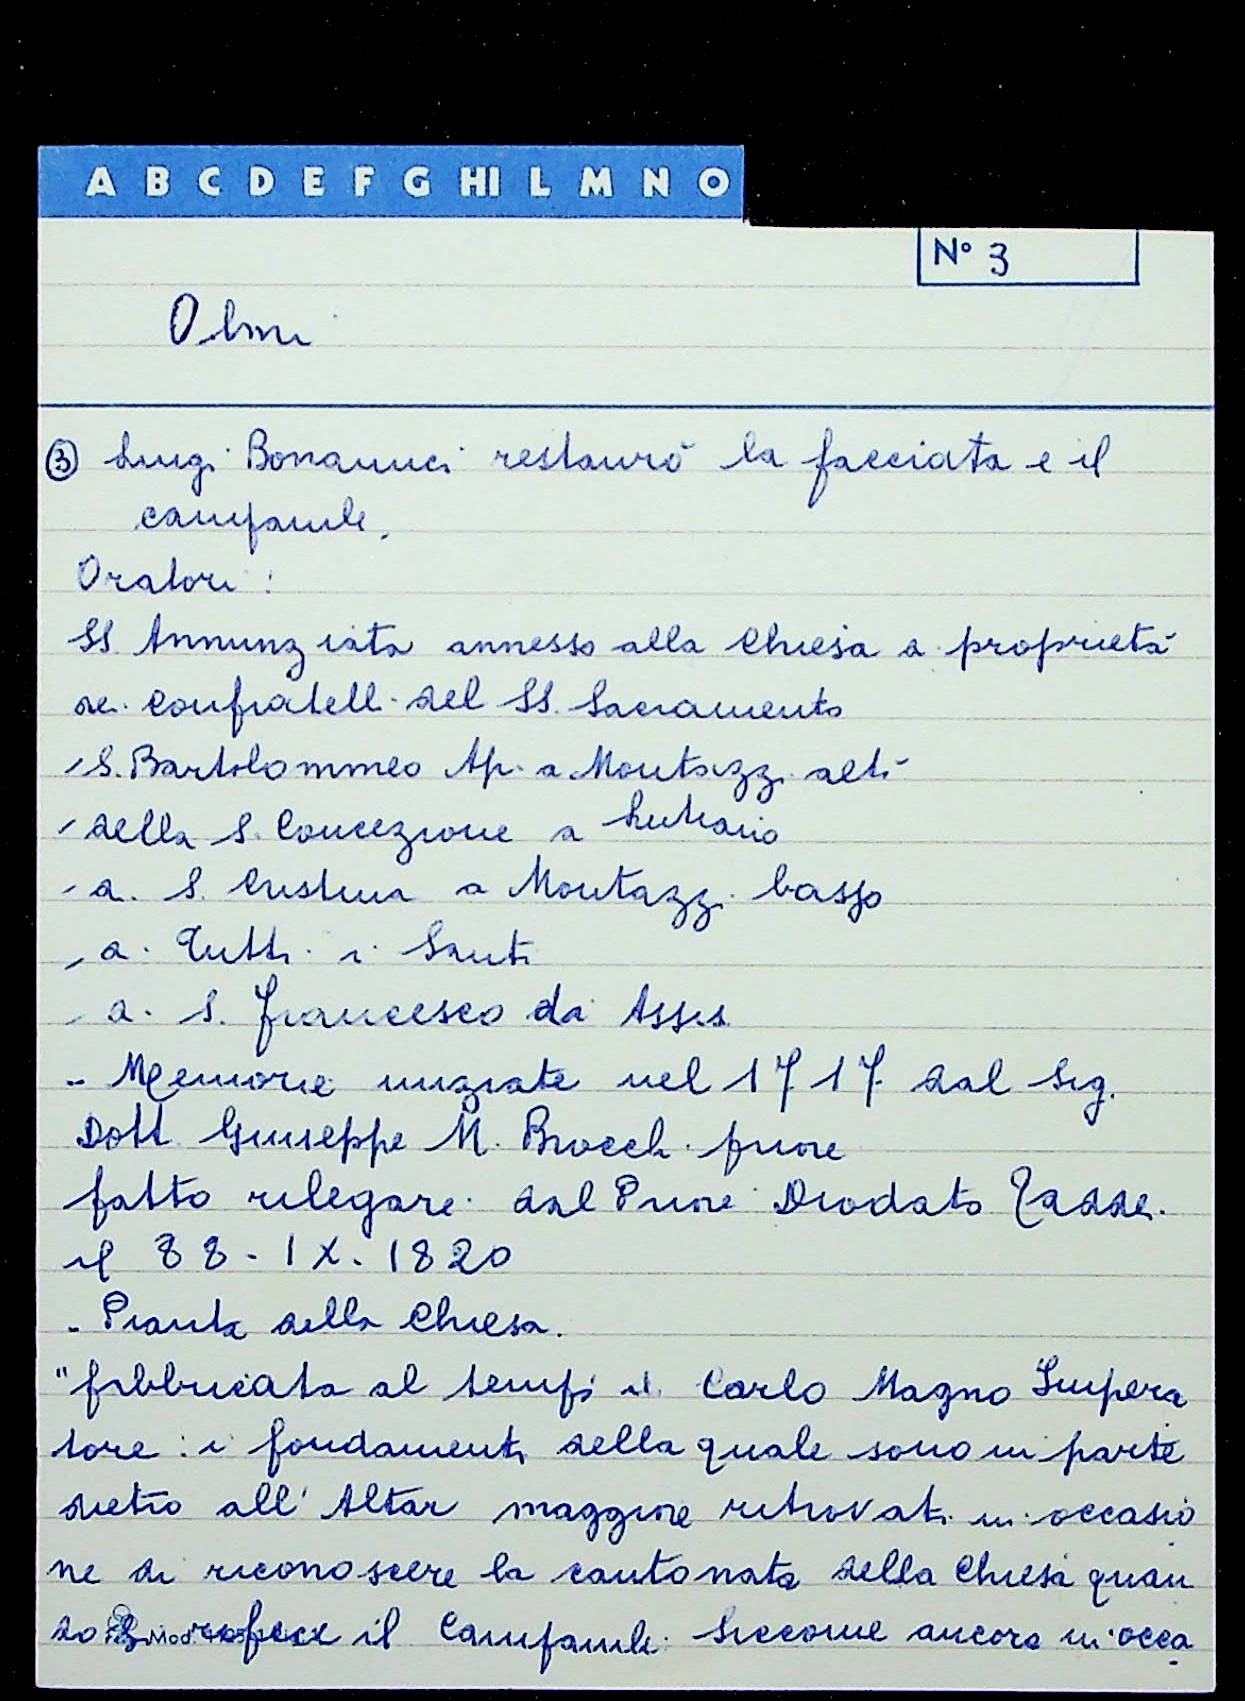 A B C D E F G HI L M N O
N° 3
Olmi
③ Luigi Bonanuci restaurò la facciata e il
campanile.
Oratori:
SS. Annunziata annesso alla Chiesa a proprietà
dei confratelli del SS. Sacramento
- S. Bartolommeo Ap. a Montazzi alti
- della S. Concezione a
- a. S. Cristina a Montazzi basso
- a. Tutti i Santi
- a. S. Francesco di Assisi
- Memorie iniziate nel 1717 dal Sig.
Dott Giuseppe M. Brocchi priore
fatto rilegare dal Priore Diodato Taddei
il 88-IX-1820
- Pianta della Chiesa.
"fabbricata al tempi di Carlo Magno Impera
tore: i fondamenti della quale sono in parte
dietro all'Altar maggiore ritrovati in occasio
ne di riconoscere la cantonata della Chiesa quan
do si rifece il Campanile: Siccome ancora in occa